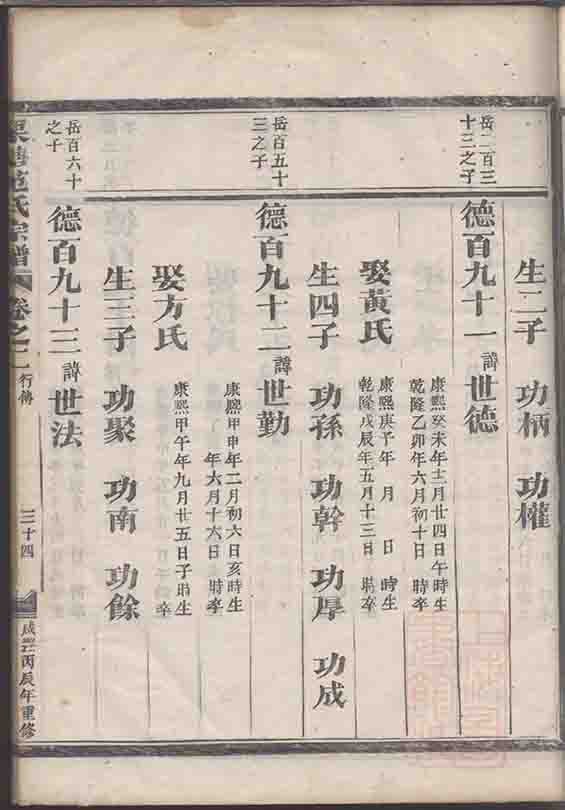 生二子　功柄　功權
岳二百三
十三之子
德百九十一諱世德
康熙癸未年十二月廿四日午時生
乾隆乙卯年六月初十日　時卒
娶黃氏
康熙庚子年　月　日　時生
乾隆戊辰年五月十三日　時卒
生四子　功孫　功幹　功厚　功成
岳百五十
三之子
德百九十二諱世勤
康熙甲申年二月初六日亥時生
年六月十六日　時卒
娶方氏
康熙甲午年九月廿五日子時生
時卒
生三子　功聚　功南　功餘
岳百六十
之子
德百九十三諱世法
范氏宗譜　卷之二　行傳　三十四　咸豐丙辰年重修